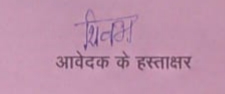 शिवम
आवेदक के हस्ताक्षर